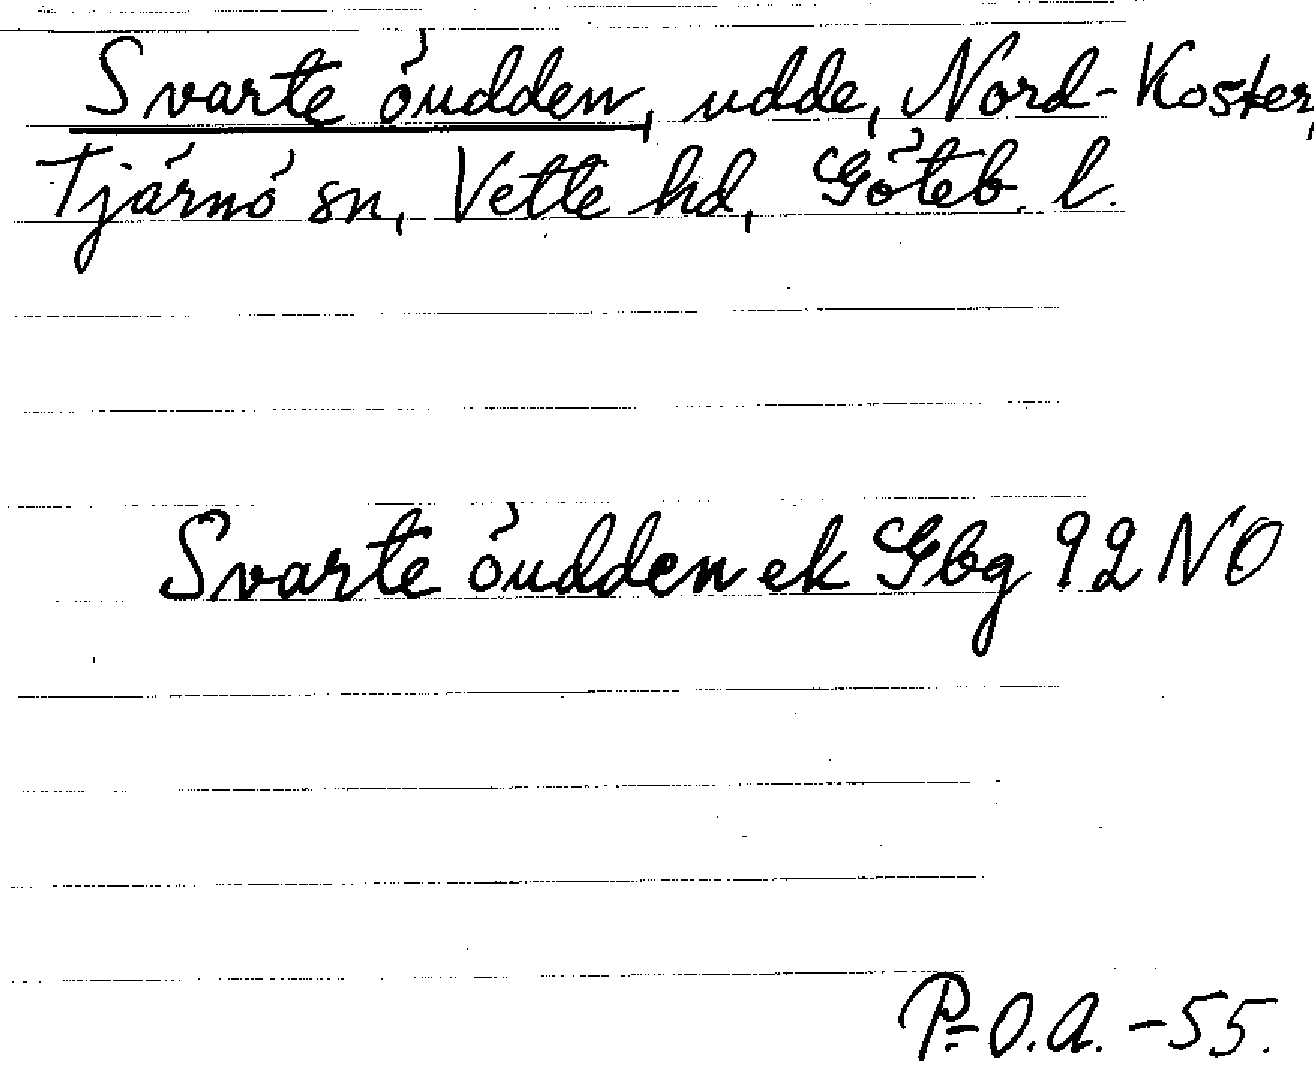 Svarte öudden, udde, Nord-Koster,
Tjärnö sn, Vette hd, Göteb. l.
Svarte öudden ek Gbg 92 NO
P.-O.A. -55.